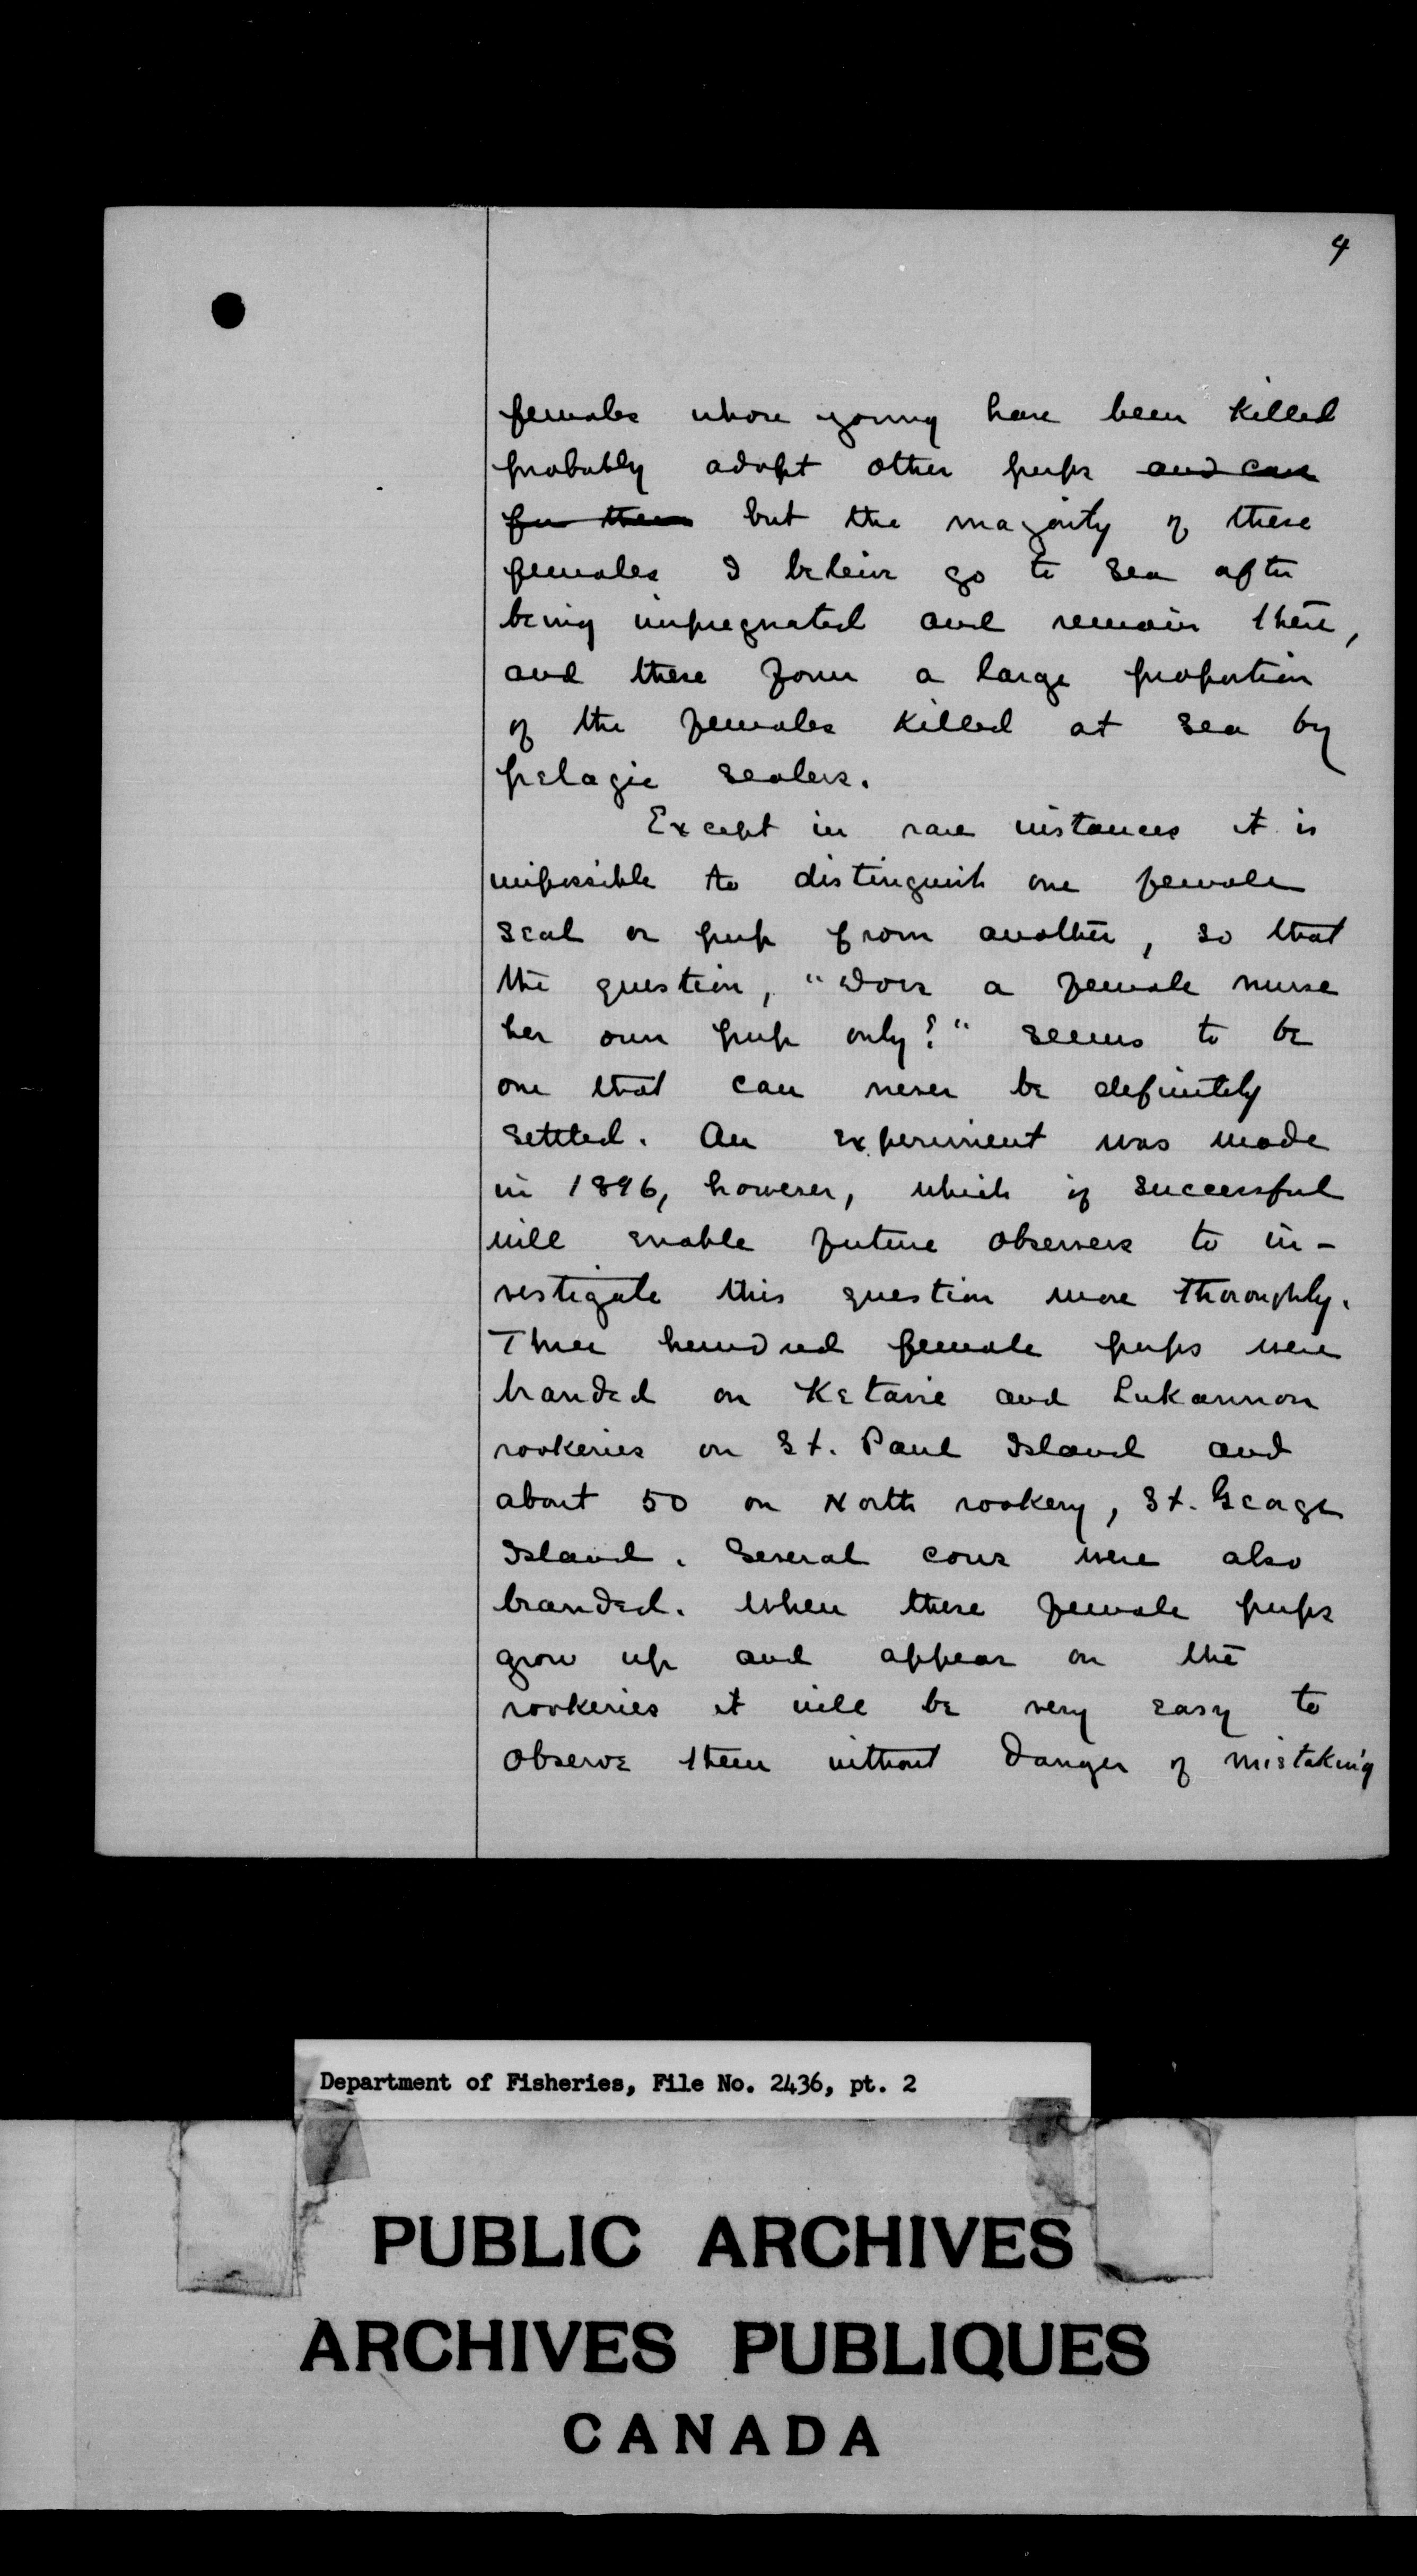 4
females whose young have been killed
probably adopt other pups and care
for them but the majority of these
females I believe go to sea after
being impregnated and remain there,
and these form a large proportion
of the females killed at sea by
pelagic sealers.
Except in rare instances it is
impossible to distinguish one female
seal or pup from another, so that
the question, "Does a female nurse
her own pup only?" seems to be
one that can never be definitely
settled. An experiment was made
in 1896, however, which if successful
will enable future observers to in-
vestigate this question more thoroughly.
Three hundred female pups were
branded on Ketavie and Lukannon
rookeries on St. Paul Island and
about 50 on North rookery, St. George
Island. Several cows were also
branded. When these female pups
grow up and appear on the
rookeries it will be very easy to
observe them without danger of mistaking
Department of Fisheries, File No. 2436, pt. 2
PUBLIC ARCHIVES
ARCHIVES PUBLIQUES
CANADA